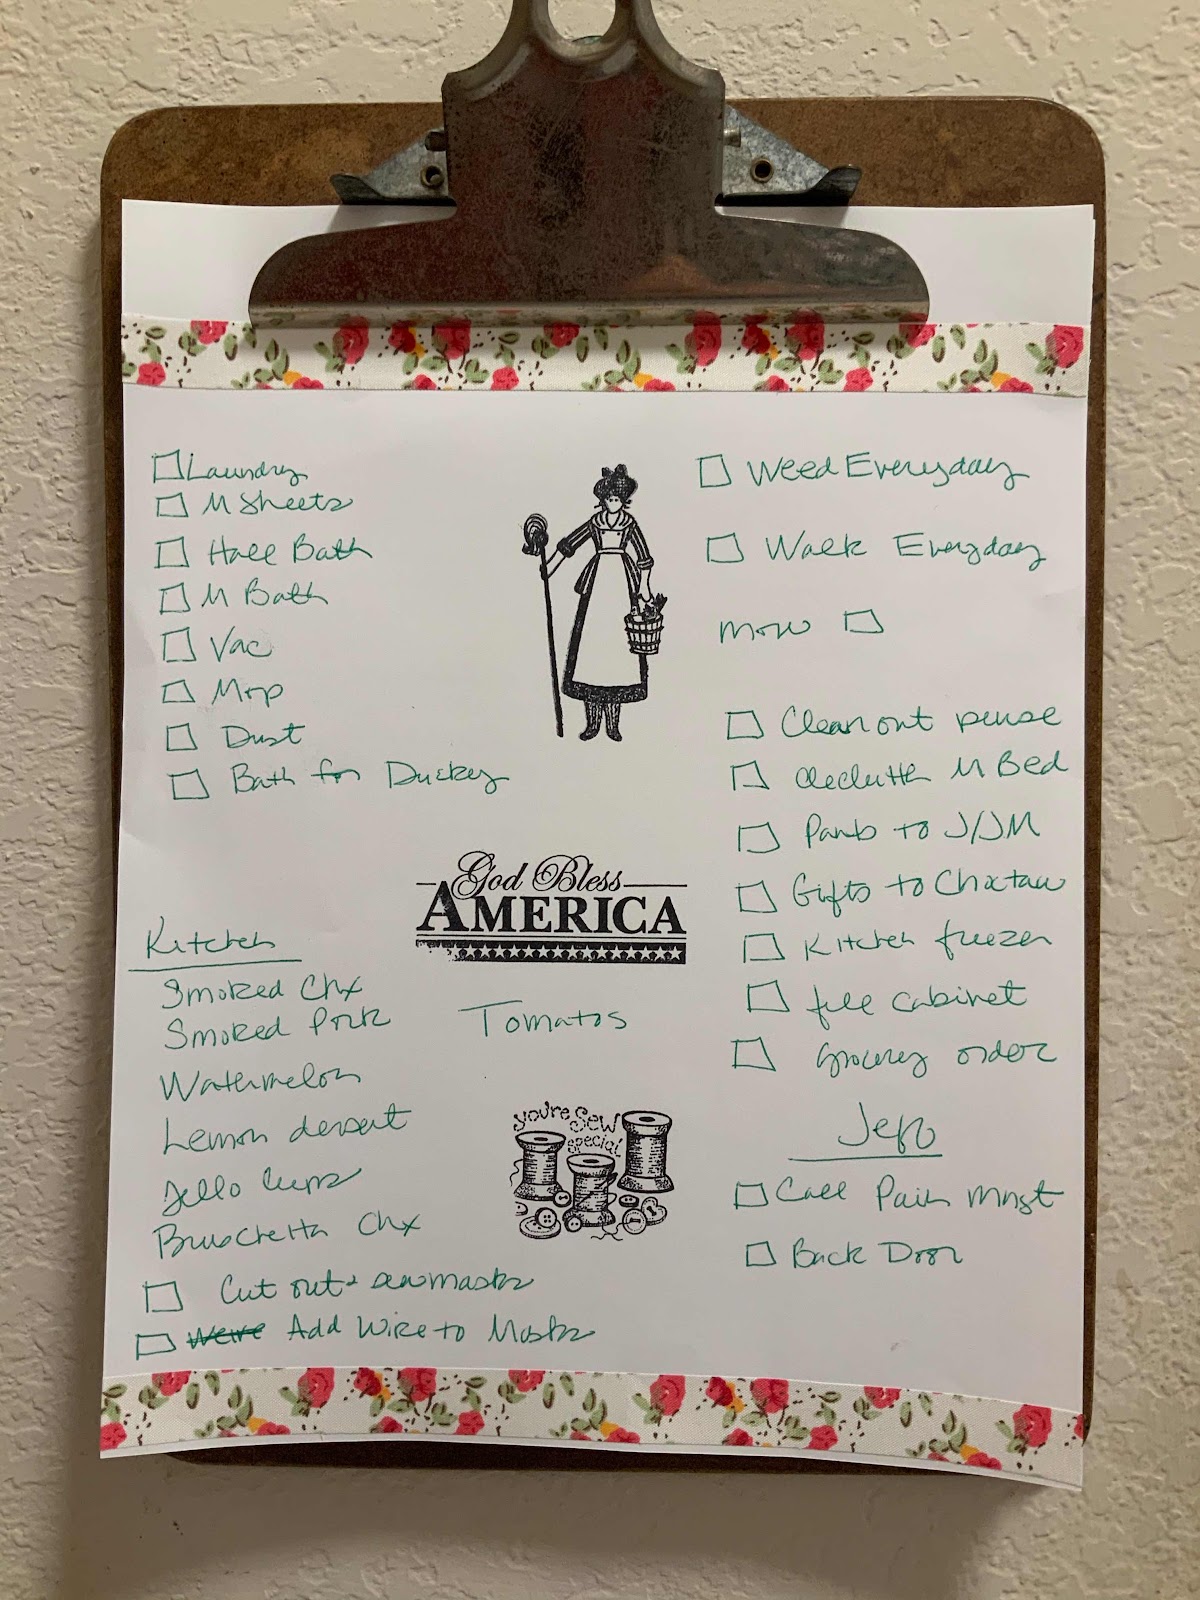 Laundry
M Sheets
Hall Bath
M Bath
Vac
Mop
Dust
Bath for Duckey
Weed Everyday
Walk Everyday
mow
Clean out purse
declutter M Bed
to J/JM
Gifts to Choctaw
Kitchen freezer
file cabinet
Grocery order
God Bless
AMERICA
Kitchen
Smoked Chx
Smoked Pork
Tomatos
Watermelon
Lemon dessert
Jello Cups
Bruschetta Chx
you're Sew
special
Cut out & sew masks
Were Add Wire to Masks
Jeff
Call Pain Mngt
Back Door